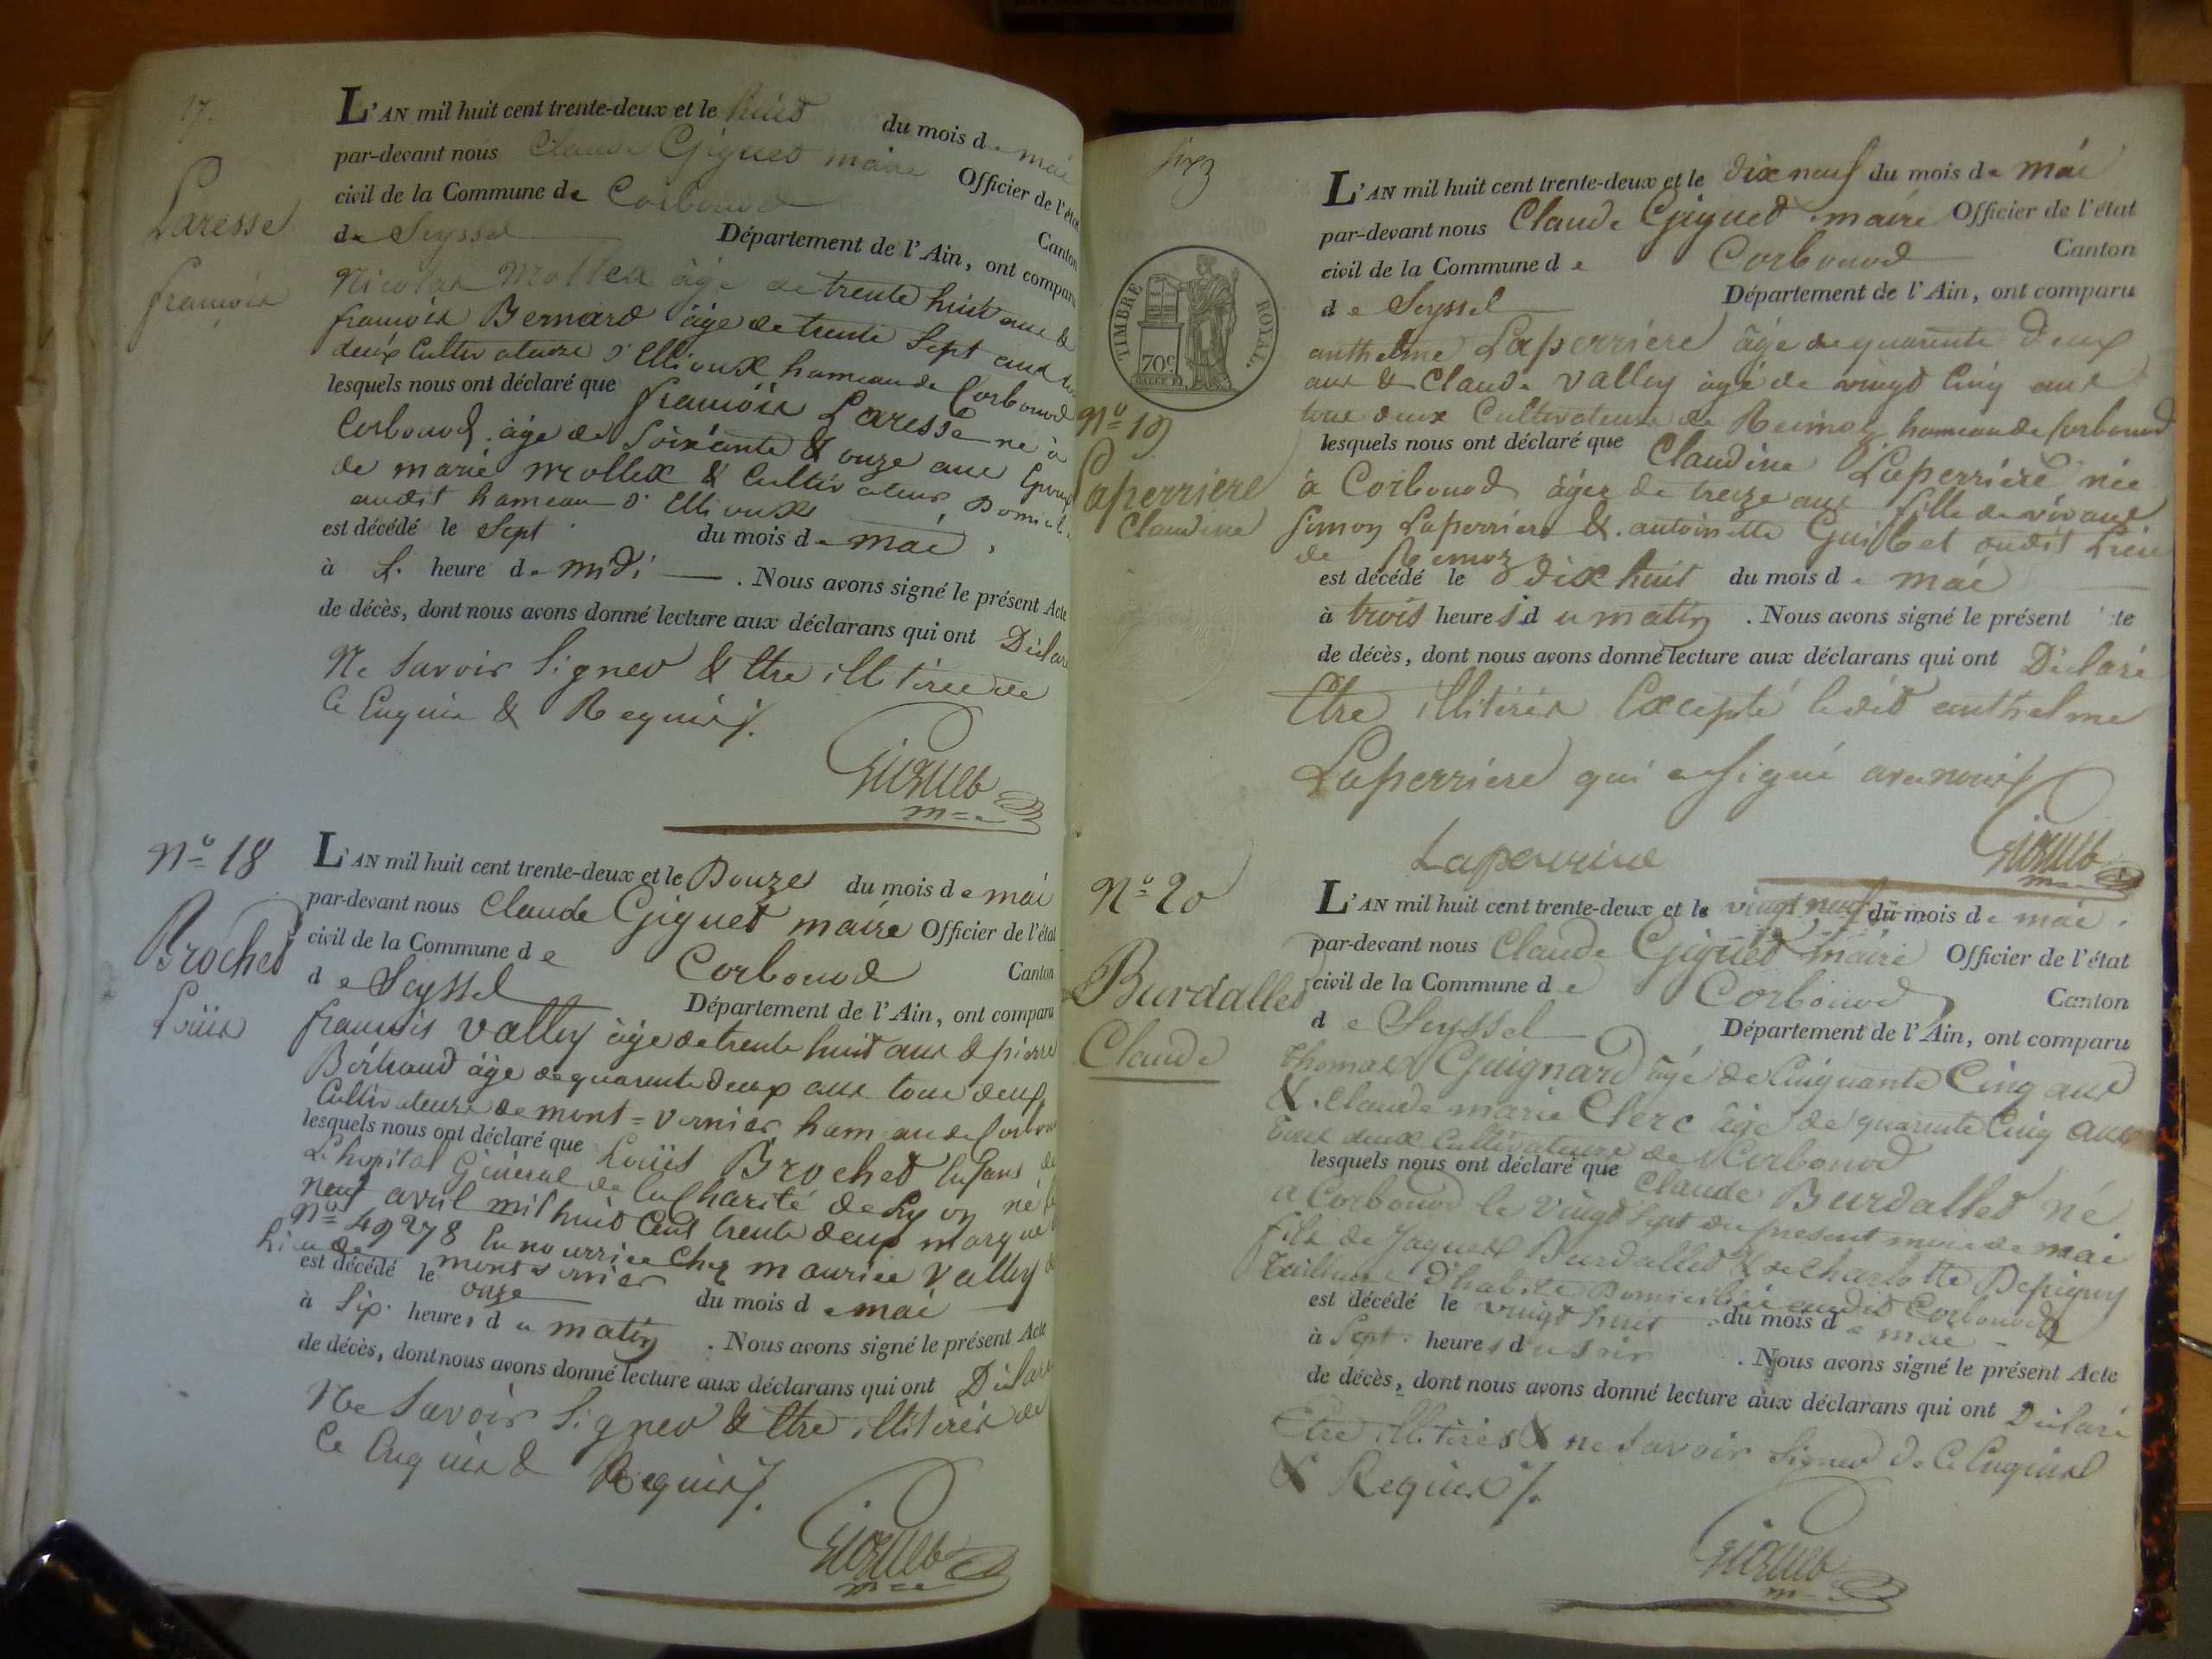 17.
Laresse
françois
L'AN mil huit cent trente-deux et le huit du mois de mai
par-devant nous Claude Giguet maire Officier de l'état
civil de la Commune de Corbonod Canton
de Seyssel Département de l'Ain, ont comparu
Nicolas Mollex âgé de trente huit ans &
françois Bernard âgé de trente Sept ans tous
deux Cultivateurs d'Ellioux hameau de Corbonod
lesquels nous ont déclaré que françois Laresse né à
Corbonod, âgé de Soixante & onze ans Epoux
de marie mollex & Cultivateur, Domicilié
audit hameau d'Ellioux
est décédé le Sept du mois de mai,
à L. heure de midi. Nous avons signé le présent Acte
de décès, dont nous avons donné lecture aux déclarans qui ont Déclaré
Ne Savoir Signer & Etre illitérés de
Ce Enquis & Requis /.
Giguet
m=e
N.º 18
Brochet
Louis
L'AN mil huit cent trente-deux et le Douze du mois de mai
par-devant nous Claude Giguet maire Officier de l'état
civil de la Commune de Corbonod Canton
de Seyssel Département de l'Ain, ont comparu
françois Valley âgé de trente huit ans & pierre
Berthaud âgé de quarante deux ans tous deux
Cultivateurs de mont=Vernier hameau de Corbonod
lesquels nous ont déclaré que Louis Brochet Enfans de
L'hopital Général de la Charité de Lyon né le
neuf avril mil huit Cent trente deux marqué
N.º 49278 En nourrice Chez maurice Valley du
Lieu de mont vernier
est décédé le onze du mois de mai
à Six heures du matin. Nous avons signé le présent Acte
de décès, dont nous avons donné lecture aux déclarans qui ont Déclaré
Ne Savoir Signer & Etre illitérés de
Ce Enquis & Requis /.
Giguet
m=e
TIMBRE ROYAL.
70c
N.º 19
Laperriere
Claudine
L'AN mil huit cent trente-deux et le dix neuf du mois de mai
par-devant nous Claude Giguet maire Officier de l'état
civil de la Commune de Corbonod Canton
de Seyssel Département de l'Ain, ont comparu
anthelme Laperriere âgé de quarante Deux
ans & Claude Valley âgé de vingt Cinq ans
tous deux Cultivateurs de Remoz hameau de Corbonod
lesquels nous ont déclaré que Claudine Laperriere née
à Corbonod âgée de treize ans fille de vivans
Simon Laperriere & antoinette Guillet audit Lieu
de Remoz
est décédé le dix huit du mois de mai
à trois heures du matin. Nous avons signé le présent te
de décès, dont nous avons donné lecture aux déclarans qui ont Déclaré
Etre illitérés Excepté ledit anthelme
Laperriere qui a Signé avec nous /
Laperrire
Giguet
N.º 20
Burdallet
Claude
L'AN mil huit cent trente-deux et le vingt neuf du mois de mai.
par-devant nous Claude Giguet maire Officier de l'état
civil de la Commune de Corbonod Canton
de Seyssel Département de l'Ain, ont comparu
Thomas Guignard âgé de Cinquante Cinq ans
& Claude marie Clerc âgé de quarante Cinq ans
tous deux Cultivateurs de Corbonod
lesquels nous ont déclaré que Claude Burdallet né
a Corbonod le Vingt Sept du present mois de mai
fils de Jaques Burdallet & de Charlotte Depigny
Tailleur d'habits Domiciliés audit Corbonod
est décédé le vingt huit du mois de mai
à Sept heures du Soir. Nous avons signé le présent Acte
de décès, dont nous avons donné lecture aux déclarans qui ont Déclaré
Etre illitérés & ne Savoir Signer de Ce Enquis
& Requis /.
Giguet